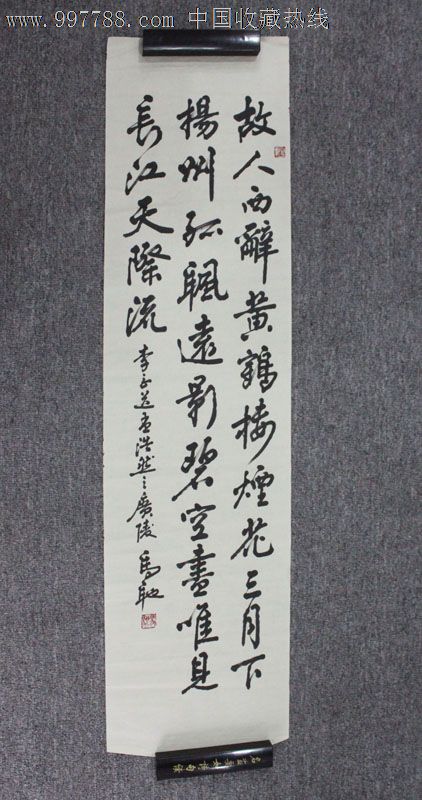 www.997788.com 中国收藏热线
故人西辭黄鶴楼煙花三月下
楊州孤颿遠影碧空盡唯見
長江天際流 李白送孟浩然之廣陵